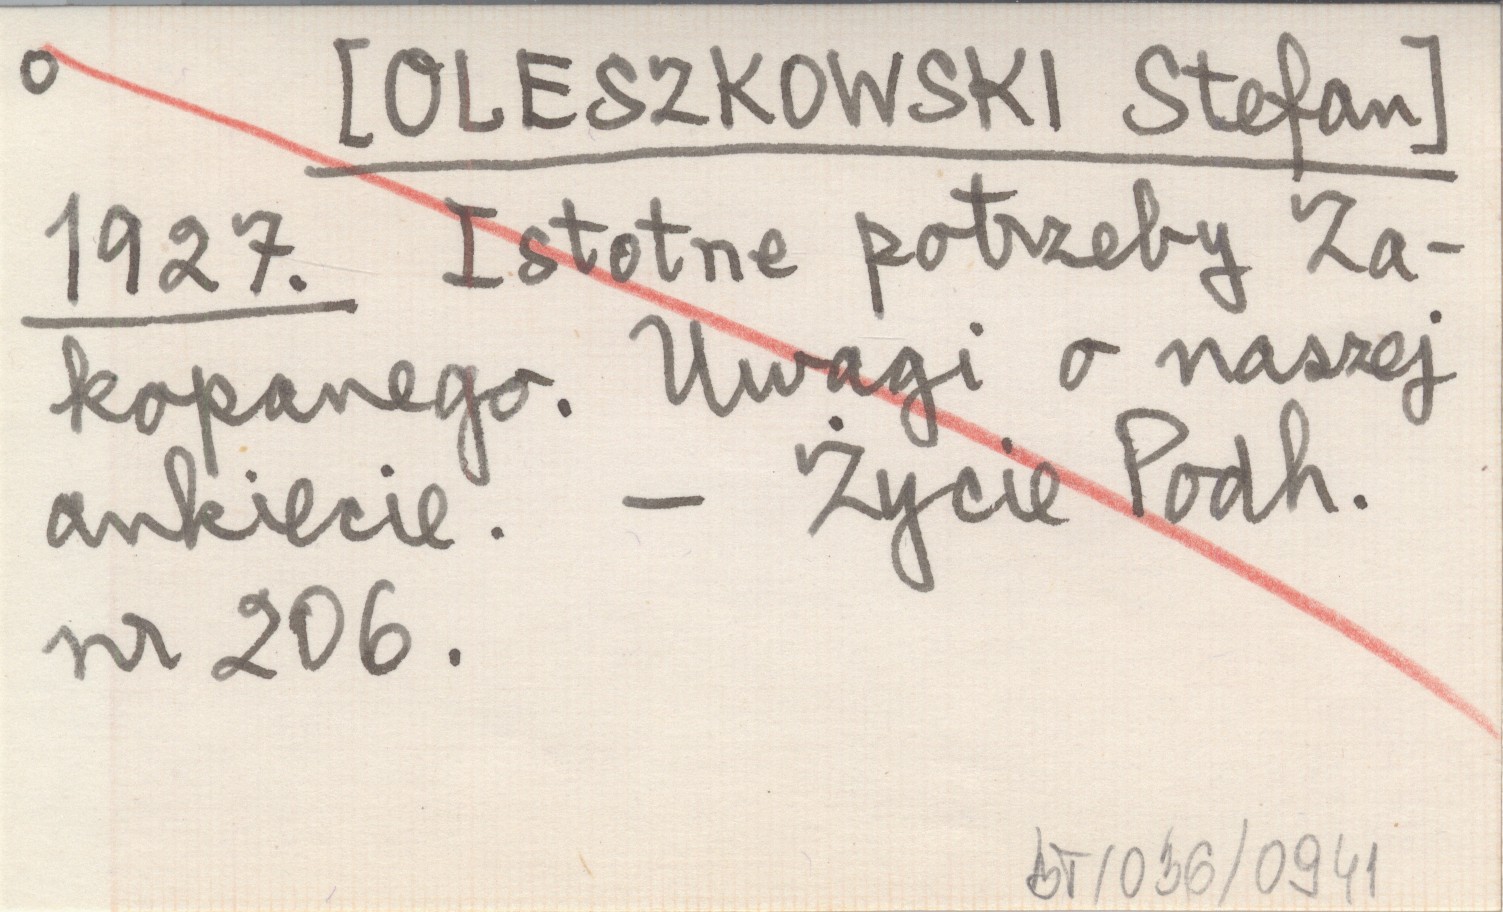 o [OLESZKOWSKI Stefan]
1927. Istotne potrzeby Za-
kopanego. Uwagi o naszej
ankiecie. – Życie Podh.
nr 206.
BT/036/0941